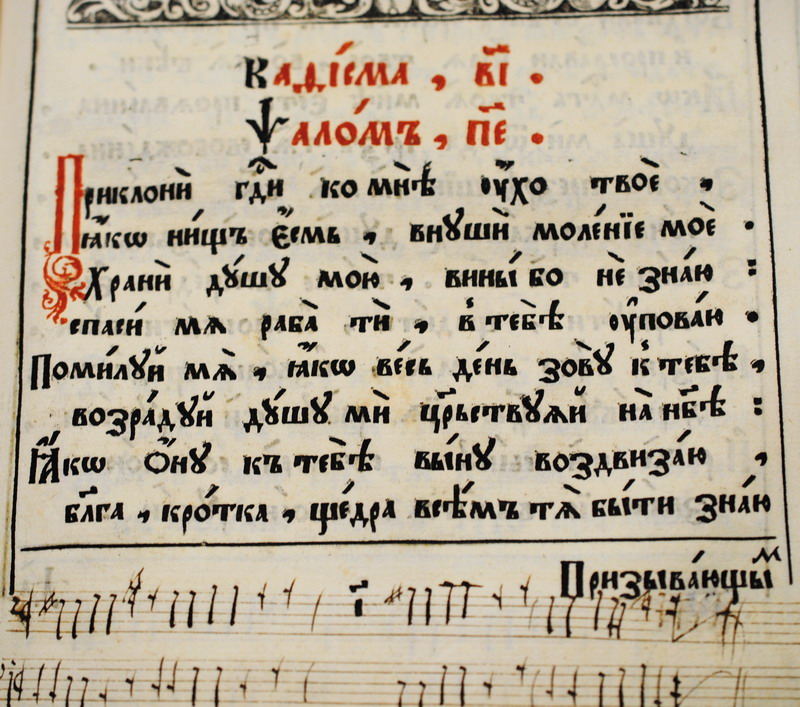 Каді́сма , в҃і .
Ѱало́мъ , п҃е .
Приклони̇̀ гд҃и ко мнѣ̀ ᲂу҆́хо твоѐ ,
ꙗ҆́кѡ ни́щъ є҆́смь , внꙋшѝ моле́нїе моѐ .
Хранѝ дꙋ́шꙋ мою̀ , вины́ бо нѐ зна́ю :
спасѝ мѧ̀ раба̀ тѝ , в̾ тебѣ̀ ᲂу҆пова́ю .
Поми́лꙋй мѧ̀ , ꙗ҆́кѡ ве́сь де́нь зовꙋ̀ к̾ тебѣ̀ ,
возра́дꙋй дꙋ́шꙋ мѝ ца҃рьствꙋѧй на̀ нб҃ѣ :
Ꙗ҆́кѡ Ѻ҆́нꙋ къ тебѣ̀ вы́нꙋ воздвиза́ю ,
бл҃га , кро́тка , ще́дра всѣ́мъ тѧ̀ бы́ти зна́ю
Призыва́ющыⷨ